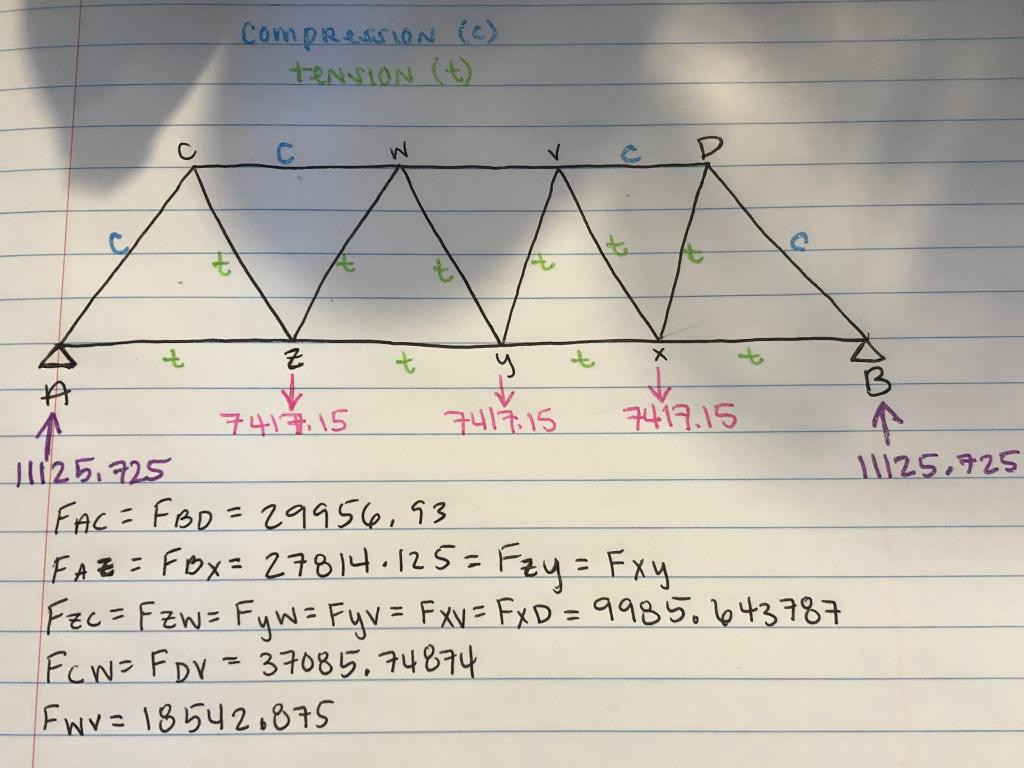 Compression (c)
tension (t)
C C W V C D
C t t t t t t C
A t z t y t x t B
7417.15 7417.15 7417.15
11125.725 11125.725
FAC = FBD = 29956.93
FAZ = FBX = 27814.125 = Fzy = Fxy
Fzc = Fzw = Fyw = Fyv = Fxv = FxD = 9985.643787
Fcw = FDV = 37085.74874
Fwv = 18542.875